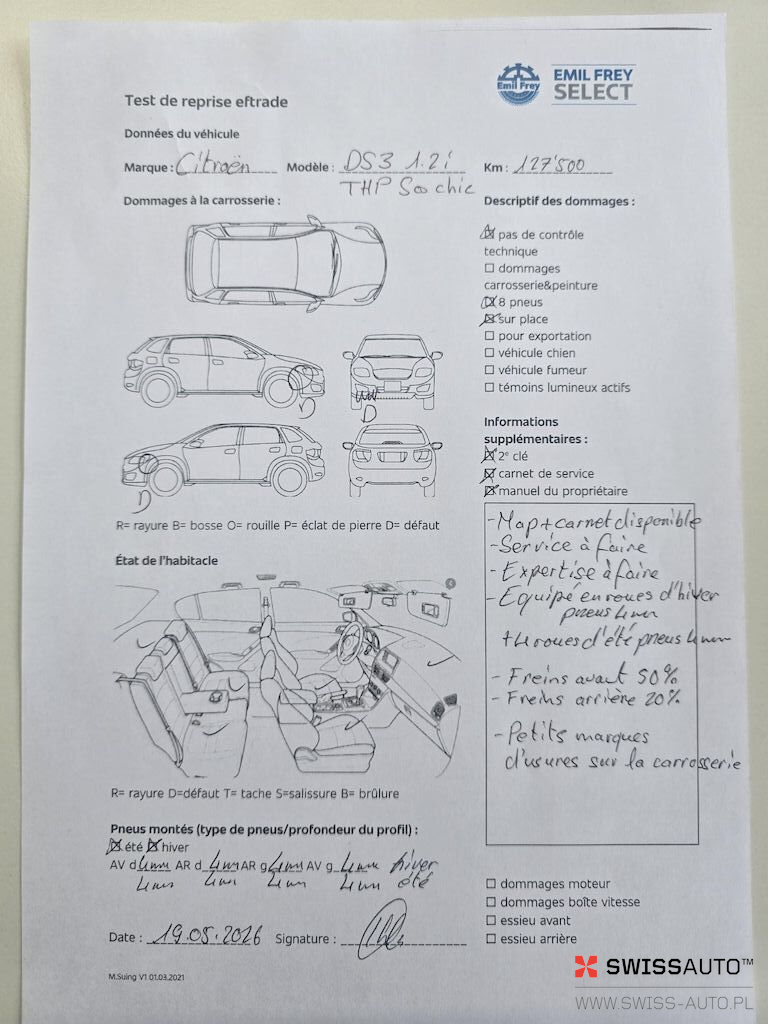 Emil Frey
EMIL FREY
SELECT
Test de reprise eftrade
Données du véhicule
Marque : Citroën Modèle : DS3 1.2i Km : 127'500
THP So chic
Dommages à la carrosserie :
Descriptif des dommages :
☒ pas de contrôle
technique
☐ dommages
carrosserie&peinture
☒ 8 pneus
☒ sur place
☐ pour exportation
☐ véhicule chien
☐ véhicule fumeur
☐ témoins lumineux actifs
D
D
D
Informations
supplémentaires :
☒ 2e clé
☒ carnet de service
☒ manuel du propriétaire
R= rayure B= bosse O= rouille P= éclat de pierre D= défaut
- Map + carnet disponible
- Service à faire
- Expertise à faire
- Equipé en roues d'hiver
pneus 4mm
+ 4 roues d'été pneus 4mm
- Freins avant 50%
- Freins arrière 20%
- Petits marques
d'usures sur la carrosserie
État de l'habitacle
R= rayure D=défaut T= tache S=salissure B= brûlure
Pneus montés (type de pneus/profondeur du profil) :
☒ été ☒ hiver
AV d 4mm AR d 4mm AR g 4mm AV g 4mm hiver
4mm 4mm 4mm 4mm été
☐ dommages moteur
☐ dommages boîte vitesse
☐ essieu avant
☐ essieu arrière
Date : 19.05.2026 Signature :
M.Suing V1 01.03.2021
SWISSAUTO™
WWW.SWISS-AUTO.PL